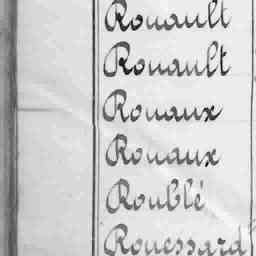 Rouault
Rouault
Rouaux
Rouaux
Roublé
Rouessard